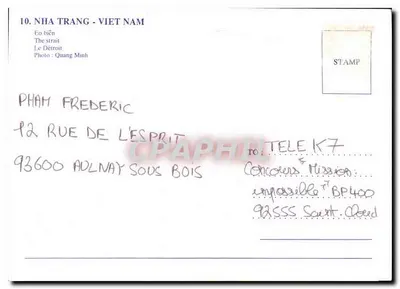 10. NHA TRANG - VIET NAM
Eo biển
The strait
Le Détroit
Photo : Quang Minh
STAMP
PHAM FREDERIC
12 RUE DE L'ESPRIT
93600 AULNAY SOUS BOIS
TO: TELE K7
Concours Mission:
impossible BP 400
92555 Saint-Cloud
CPARAMA